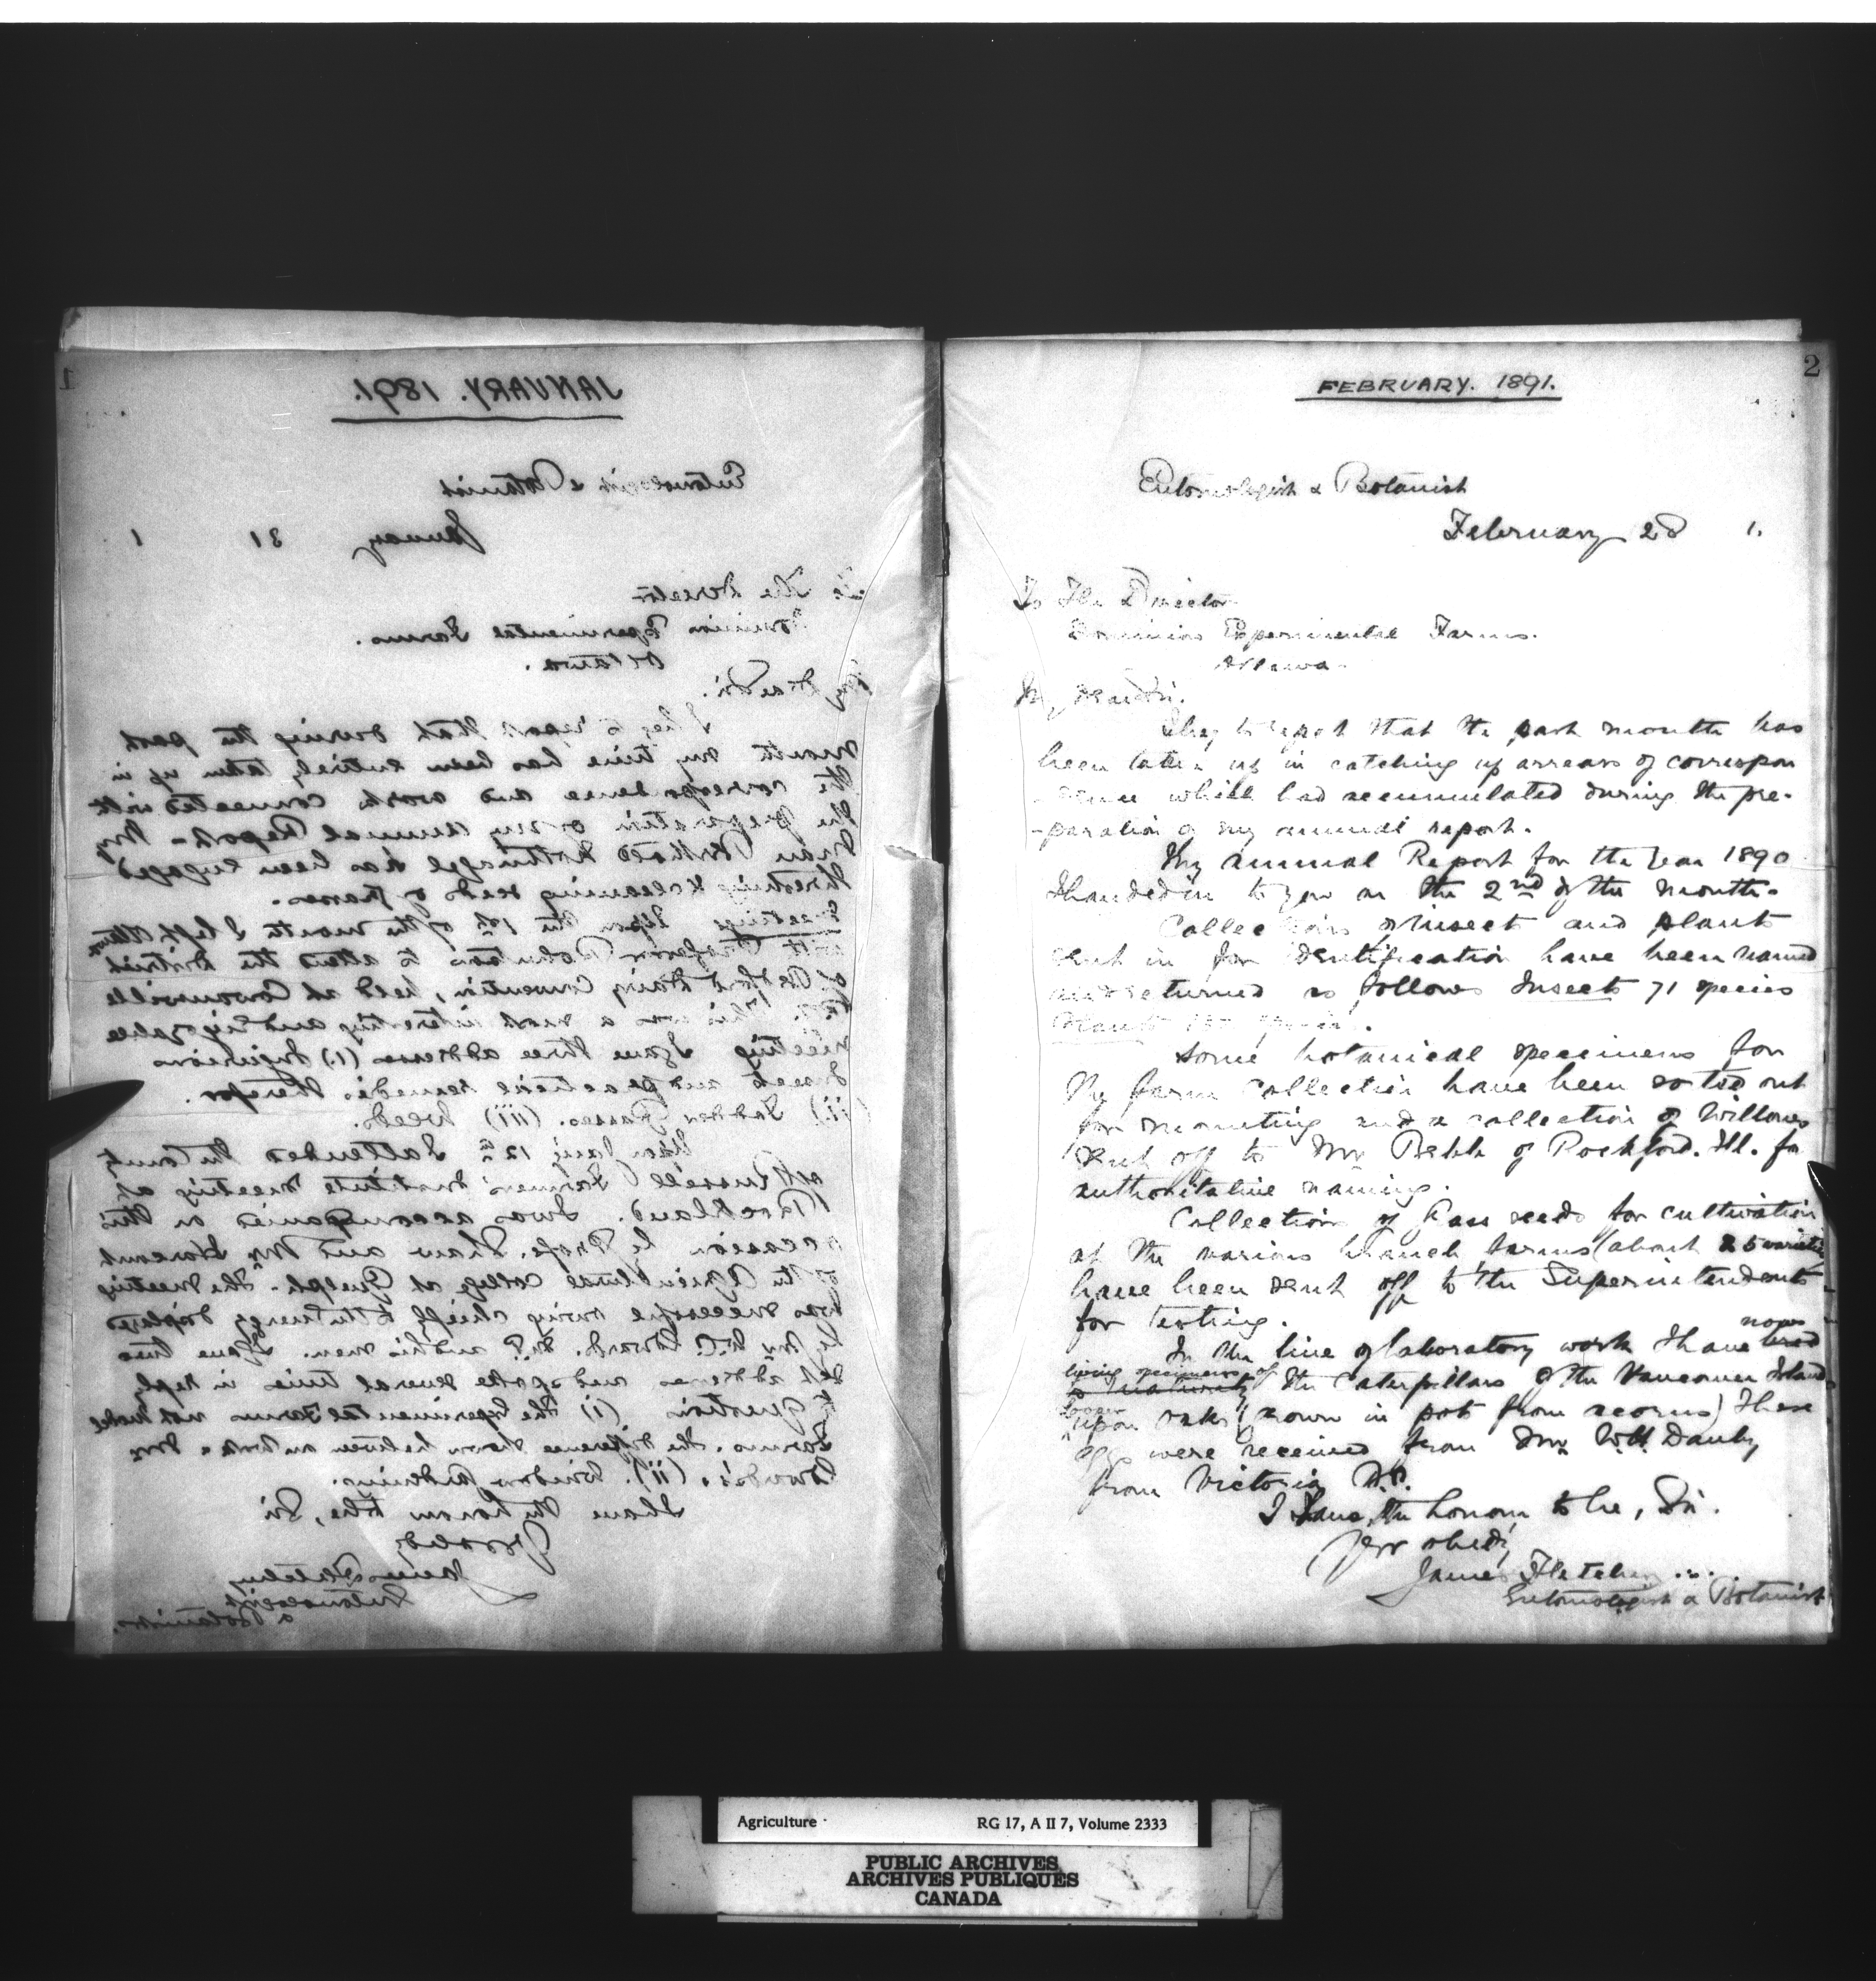 1
JANUARY. 1891.
Entomologist & Botanist
January 31 1
To The Director
Dominion Experimental Farms.
Ottawa.
My dear Sir.
I beg to report that during the past
month my time has been entirely taken up in
the correspondence and work connected with
the preparation of my Annual Report. My
man has been engaged
threshing & cleaning seeds of grasses.
Meetings Upon the of the month I left Ottawa
with Professor Robertson to attend the District
of Bedford Dairy Convention, held at Cowansville
P.Q. This was a most interesting and enjoyable
meeting I gave three addresses (1) Injurious
Insects and practical remedies therefor.
(ii) Fodder Grasses. (iii) Weeds.
Upon Jany 12th I attended the County
of Russell Farmers' Institute meeting at
Rockland. I was accompanied on this
occasion by Profr. Shaw and Mr Harcourt
of the Agricultural College at Guelph. The meeting
was successful owing chiefly to the energy displayed
by Mr W. C. Edwards. M.P. and his men. I gave two
set addresses and spoke several times in reply
to questions (1) The Experimental Farms not Model
Farms. the difference shown between and Mr
Edwards's. (ii). Window Gardening.
I have the honour to be, Sir
Yr obed
James Fletcher
Entomologist
& Botanist.
2
FEBRUARY. 1891.
Entomologist & Botanist
February 28 1.
To The Director
Dominion Experimental Farms.
Ottawa.
My dear Sir.
I beg to report that the past month has
been taken up in catching up arrears of correspon
-dence which had accumulated during the pre-
-paration of my annual report.
My annual Report for the Year 1890
I handed in to you on the 2nd of the month.
Collections of insect and plants
sent in for identification have been named
and returned as follows Insects 71 species
Plants species.
Some botanical specimens for
the farm collection have been sorted out
for mounting and a collection of Willows
sent off to Mr Bebb of Rockford. Ill. for
authoritative naming.
Collections of Grass seeds for cultivation
at the various branch farms (about 25 varieties
have been sent off to the Superintendents
for testing.
In the line of laboratory work I have now
living specimens of the Caterpillars of the Vancouver Island
looper
upon oaks (grown in pots from acorns) These
eggs were received from Mr W.H. Danby
from Victoria B.C.
I have the honour to be, Sir.
Yr obedt
James Fletcher
Entomologist & Botanist
Agriculture RG 17, A II 7, Volume 2333
PUBLIC ARCHIVES
ARCHIVES PUBLIQUES
CANADA